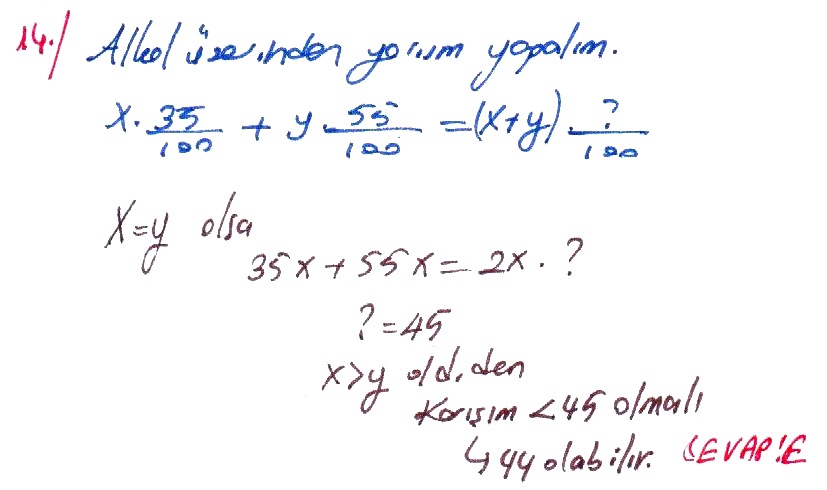 14./ Alkol üzerinden yorum yapalım.
x. 35/100 + y. 55/100 = (x+y). ?/100
X=y olsa
35x + 55x = 2x. ?
? = 45
x>y old.den
Karışım <45 olmalı
↳ 44 olabilir. CEVAP: E